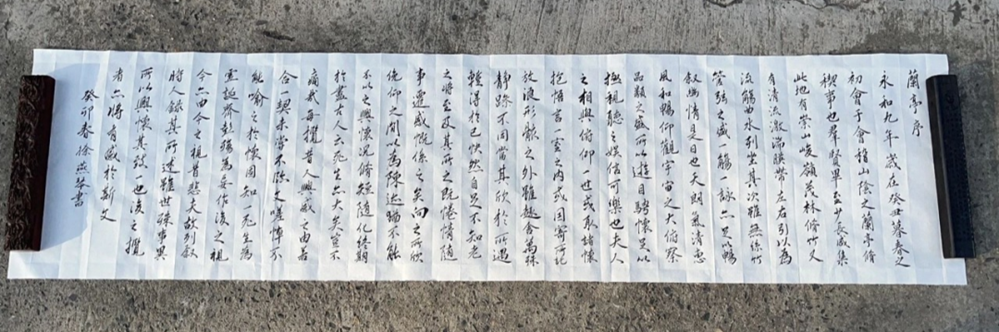 蘭亭序
永和九年歲在癸丑暮春之
初會于會稽山陰之蘭亭脩
禊事也群賢畢至少長咸集
此地有崇山峻嶺茂林脩竹又
有清流激湍暎帶左右引以為
流觴曲水列坐其次雖無絲竹
管弦之盛一觴一詠亦足以暢
敘幽情是日也天朗氣清惠
風和暢仰觀宇宙之大俯察
品類之盛所以遊目騁懷足以
極視聽之娛信可樂也夫人
之相與俯仰一世或取諸懷
抱悟言一室之內或因寄所託
放浪形骸之外雖趣舍萬殊
靜躁不同當其欣於所遇
輙得於己快然自足不知老
之將至及其所之既惓情隨
事遷感慨係之矣向之所欣
俛仰之間以為陳迹猶不能
不以之興懷況脩短隨化終期
於盡古人云死生亦大矣豈不
痛哉每攬昔人興感之由若
合一契未嘗不臨文嗟悼不
能喻之於懷固知一死生為
虛誕齊彭殤為妄作後之視
今亦由今之視昔悲夫故列敘
時人錄其所述雖世殊事異
所以興懷其致一也後之攬
者亦將有感於斯文
癸卯春徐書